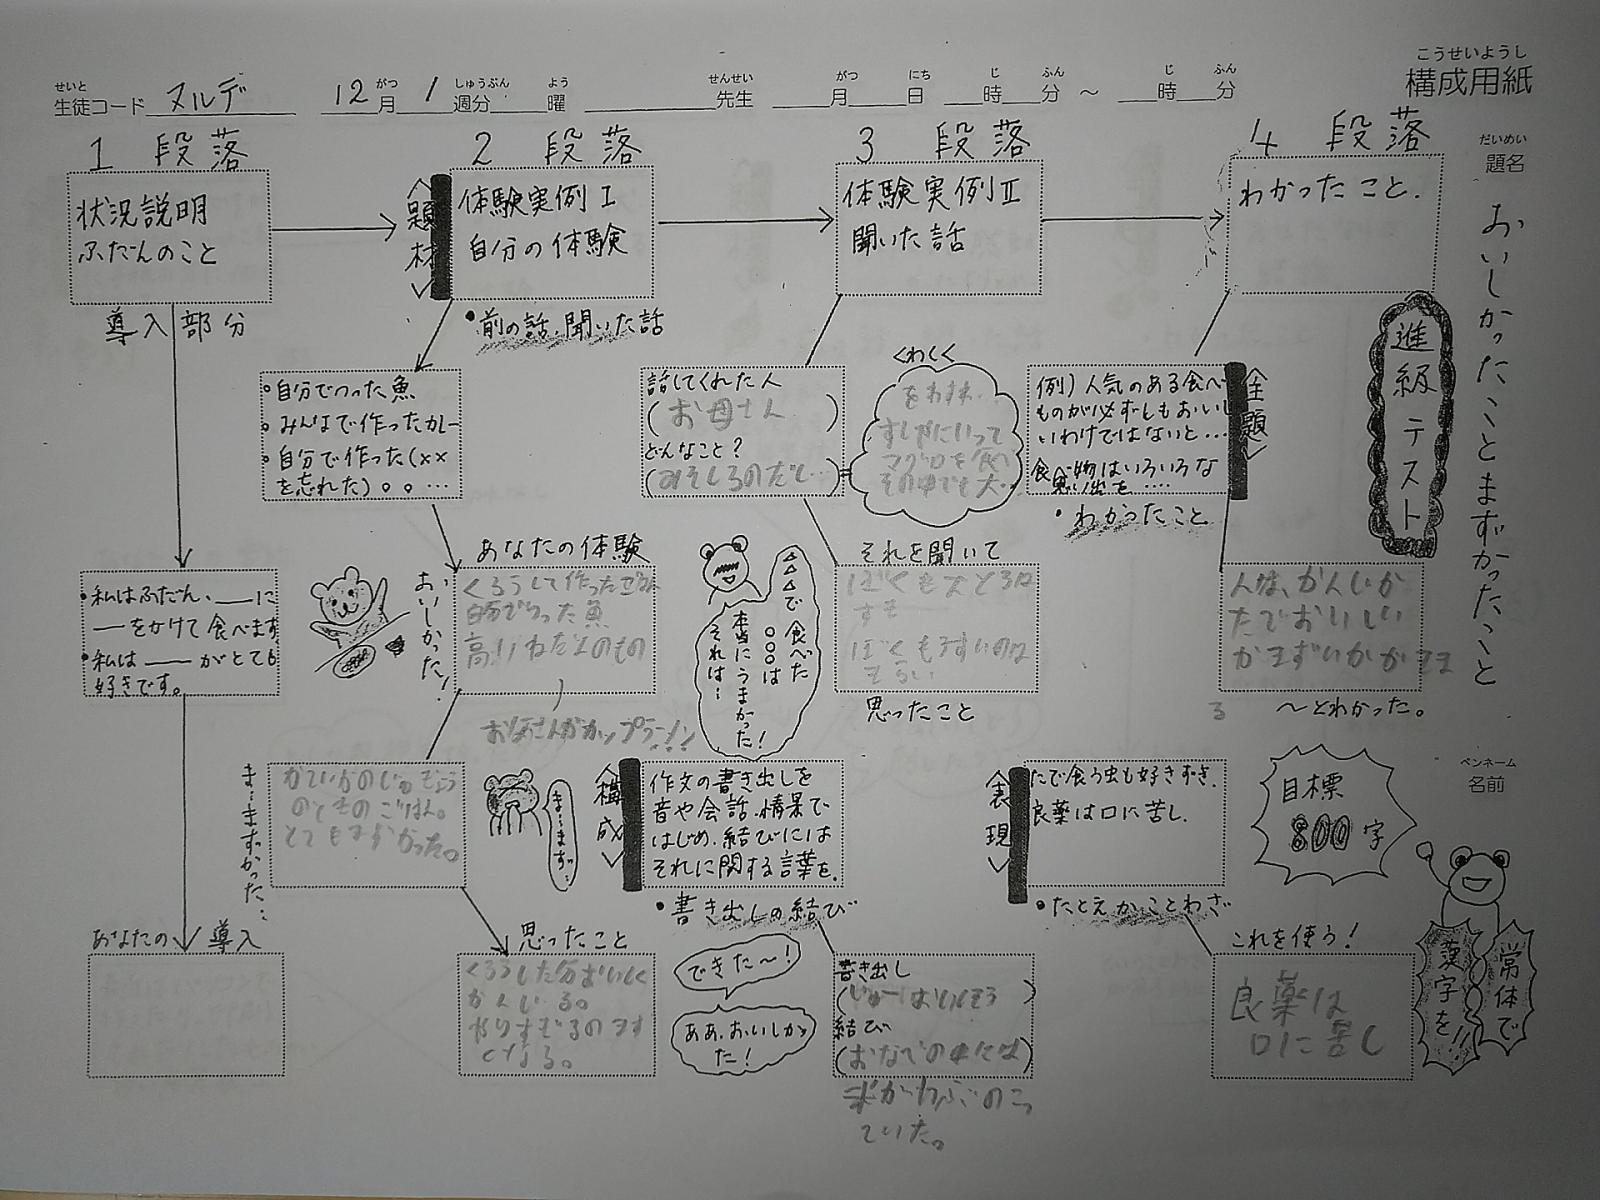 こうせいようし
構成用紙
せいと がつ しゅうぶん よう せんせい がつ にち じ ふん じ ふん
生徒コード ヌルデ 12月 1週分 曜 先生 月 日 時 分 〜 時 分
だいめい
題名
おいしかったことまずかったこと
進級テスト
1 段落
状況説明
ふだんのこと
導入部分
・私はふだん、――に
――をかけて食べます。
・私は――がとても
好きです。
あなたの導入
2 段落
<題材>
体験実例I
自分の体験
・前の話、聞いた話
○自分でつった魚
○みんなで作ったカレー
○自分で作った(××
を忘れた)○○…
あなたの体験
おいしかった!
くろうして作った
自分でつった魚
高いねだんのもの
お母さんがカップラーメン!
ま…まずかった…
かていかのじゅぎょう
のときのごはん。
とてもまずかった。
ま…まず…
思ったこと
くろうした分おいしく
かんじる。
やりすぎるのまず
くなる。
3 段落
体験実例II
聞いた話
話してくれた人
(お母さん)
どんなこと?
(みそしるのだし…)
くわしく
をわすれ..
すしやにいって
マグロを食べ
その中でも大..
それを聞いて
ぼくも大とろは
すき
ぼくもうすいのは
きらい
思ったこと
△△△で食べた
○○○は
本当にうまかった!
それは…
<構成>
作文の書き出しを
音や会話、情景で
はじめ、結びには
それに関する言葉を。
・書き出しの結び
できた〜!
ああ、おいしかっ
た!
書き出し
結び
(おなべの中には)
っていた。
4 段落
わかったこと.
<主題>
例)人気のある食べ
ものが必ずしもおいし
いわけではないと…
食べ物はいろいろな
思い出を….
・わかったこと
人は、かんじか
たでおいしい
かまずいかがきま
る
〜とわかった。
<表現>
たで食う虫も好きずき.
良薬は口に苦し.
・たとえかことわざ
これを使う!
良薬は
口に苦し
目標
800字
ペンネーム
名前
常体で
漢字を!!